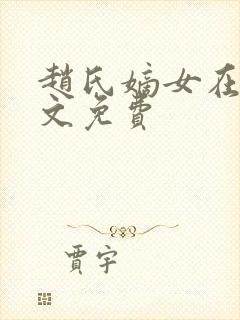 趙氏嫡女在
文免費
賈宇